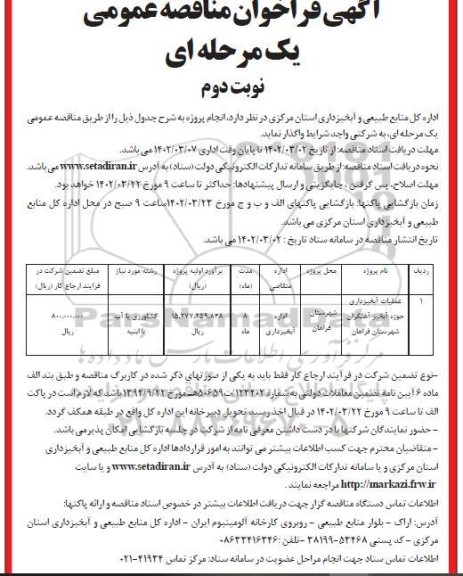 آگهی فراخوان مناقصه عمومی
یک مرحله ای
نوبت دوم
اداره کل منابع طبیعی و آبخیزداری استان مرکزی در نظر دارد، انجام پروژه به شرح جدول ذیل را از طریق مناقصه عمومی
یک مرحله ای، به شرکتی واجد شرایط واگذار نماید.
مهلت دریافت اسناد مناقصه: از تاریخ ۱۴۰۲/۰۳/۰۲ تا پایان وقت اداری ۱۴۰۲/۰۳/۰۷ می باشد.
نحوه دریافت اسناد مناقصه: از طریق سامانه تدارکات الکترونیکی دولت (ستاد) به آدرس www.setadiran.ir می باشد.
مهلت اصلاح، پس گرفتن، جایگزینی و ارسال پیشنهادها: حداکثر تا ساعت ۹ مورخ ۱۴۰۲/۰۳/۲۲ خواهد بود.
زمان بازگشایی پاکتها: بازگشایی پاکتهای الف و ب و ج مورخ ۱۴۰۲/۰۳/۲۳ ساعت ۹ صبح در محل اداره کل منابع
طبیعی و آبخیزداری استان مرکزی می باشد.
تاریخ انتشار مناقصه در سامانه ستاد تاریخ: ۱۴۰۲/۰۳/۰۲ می باشد.
ردیف نام پروژه محل پروژه اداره متقاضی مدت (ماه) برآورد اولیه پروژه (ریال) رشته مورد نیاز مبلغ تضمین شرکت در فرایند ارجاع کار (ریال)
۱ عملیات آبخیزداری حوزه آبخیز آهنگران شهرستان فراهان شهرستان فراهان اداره آبخیزداری ۸ ماه ۱۵،۴۷۷،۲۵۹،۸۴۸ ریال کشاورزی یا آب یا ابنیه ۸۰۰،۰۰۰،۰۰۰ ریال
-نوع تضمین شرکت در فرآیند ارجاع کار فقط باید به یکی از صورتهای ذکر شده در کاربرگ مناقصه و طبق بند الف
ماده ۶ آیین نامه تضمین معاملات دولتی به شماره ۱۲۳۴۰۲/ت۵۰۶۵۹هـ مورخ ۱۳۹۴/۹/۲۲ باشد که لازم است در پاکت
الف تا ساعت ۹ مورخ ۱۴۰۲/۰۳/۲۲ در قبال اخذ رسید تحویل دبیرخانه این اداره کل واقع در طبقه همکف گردد.
- حضور نمایندگان شرکتها با در دست داشتن معرفی نامه از شرکت در جلسه بازگشایی امکان پذیر می باشد.
- متقاضیان محترم جهت کسب اطلاعات بیشتر می توانند به امور قراردادها اداره کل منابع طبیعی و آبخیزداری
استان مرکزی و یا سامانه تدارکات الکترونیکی دولت (ستاد) به آدرس www.setadiran.ir و یا سایت
http://markazi.frw.ir مراجعه نمایند.
اطلاعات تماس دستگاه مناقصه گزار جهت دریافت اطلاعات بیشتر در خصوص اسناد مناقصه و ارائه پاکتها:
آدرس: اراک - بلوار منابع طبیعی - روبروی کارخانه آلومینیوم ایران - اداره کل منابع طبیعی و آبخیزداری استان
مرکزی - کد پستی ۵۳۴۶۸-۳۸۱۹۹ - تلفن: ۰۸۶۳۳۴۱۶۳۴۶
اطلاعات تماس ستاد جهت انجام مراحل عضویت در سامانه ستاد: مرکز تماس ۴۱۹۳۴-۰۲۱